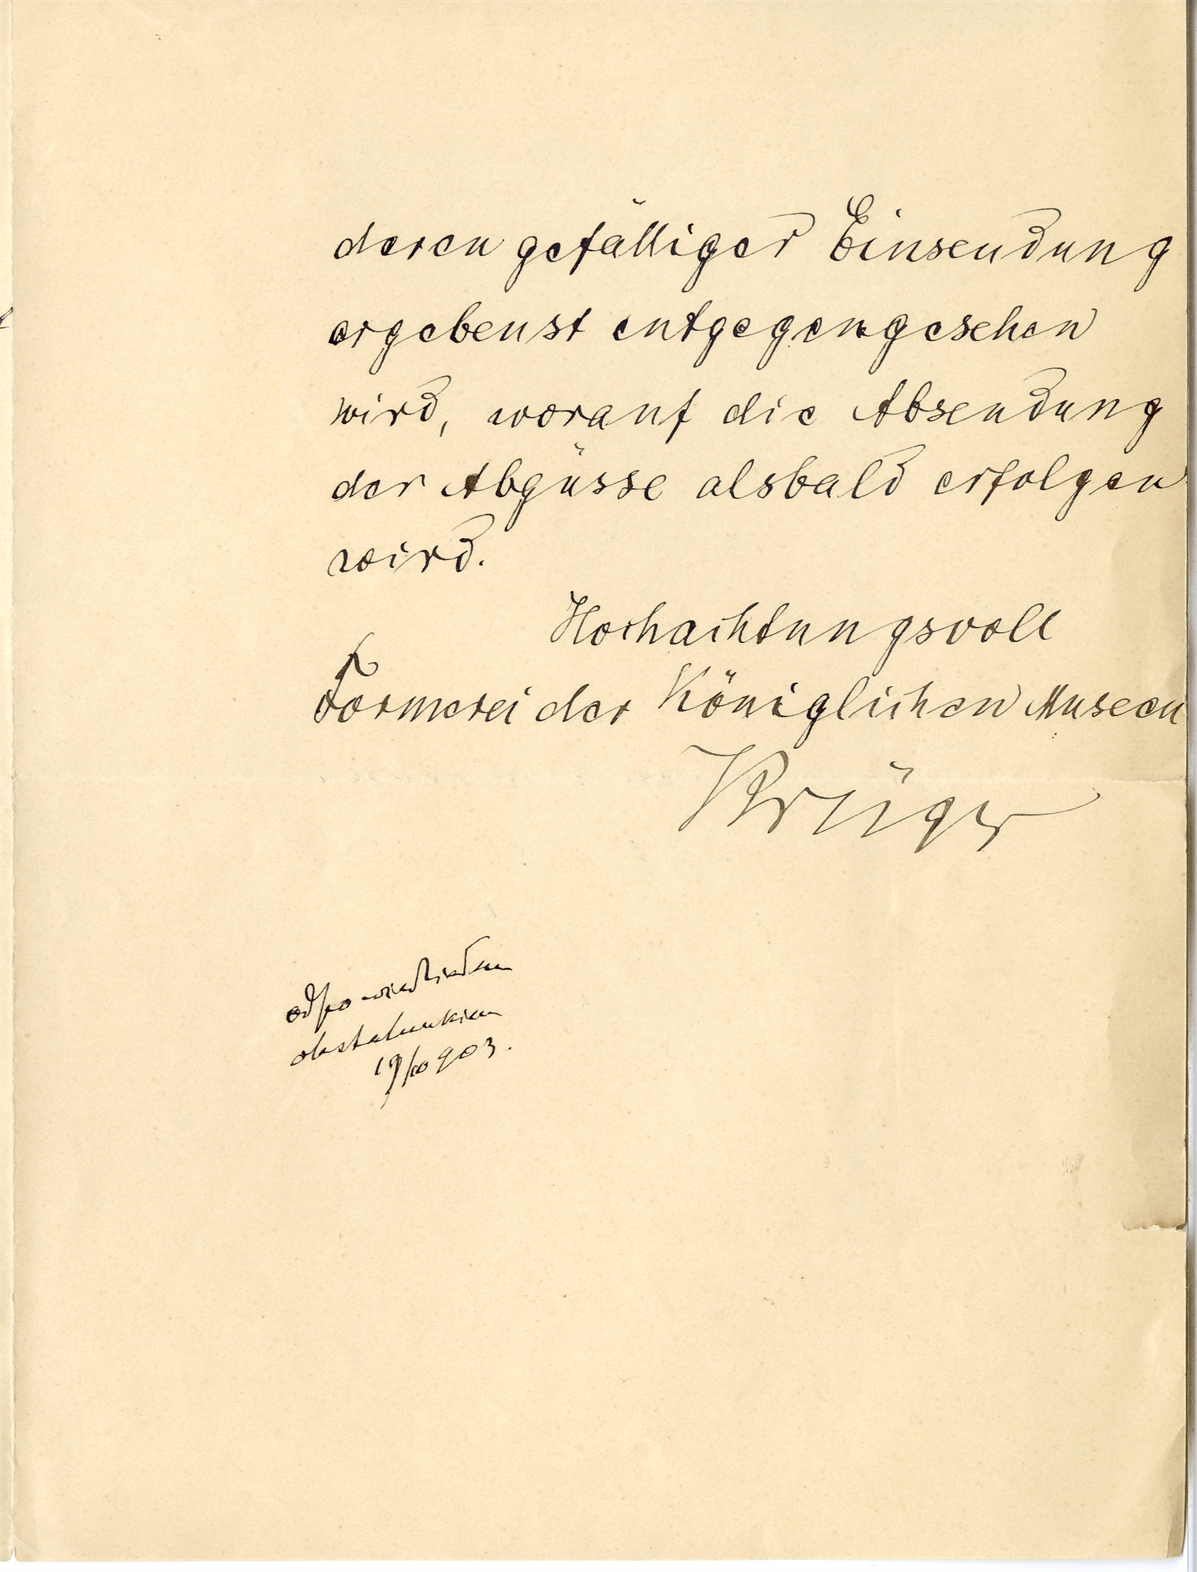 deren gefälliger Einsendung
ergebenst entgegengesehen
wird, worauf die Absendung
der Abgüsse alsbald erfolgen
wird.
Hochachtungsvoll
Formerei der Königlichen Museen
Krüger
odpowiedziałem
obstalunkiem
19/10 903.